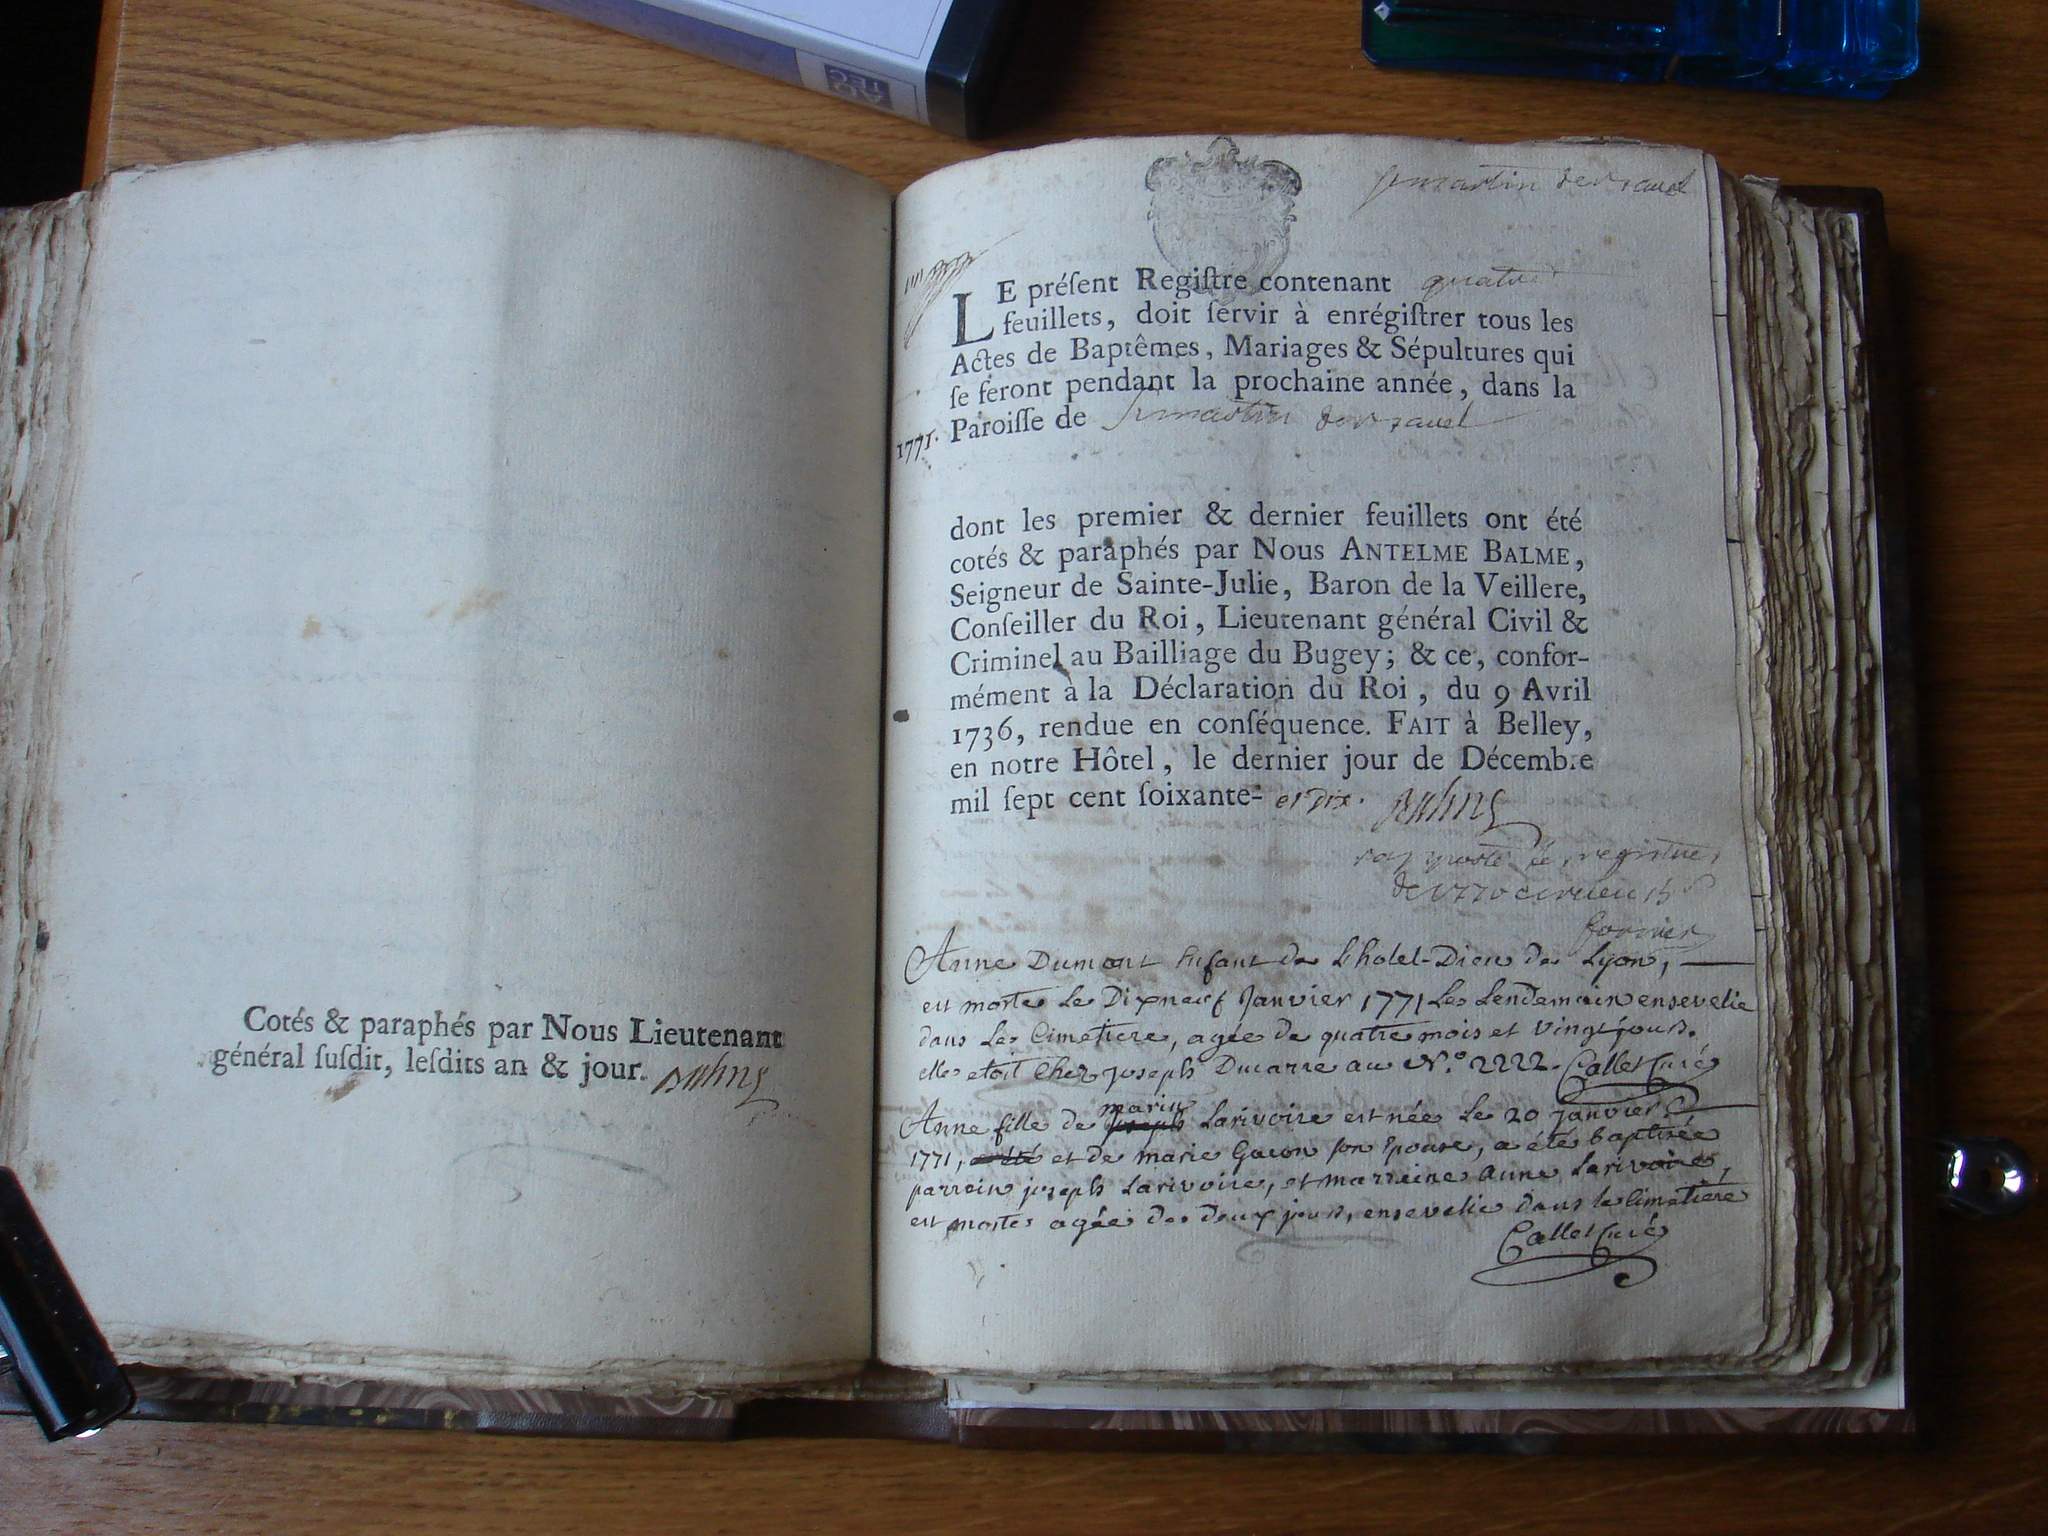 AU
TEC
Cotés & paraphés par Nous Lieutenant
général ſuſdit, leſdits an & jour.
LE préſent Regiſtre contenant quatre
feuillets, doit ſervir à enrégiſtrer tous les
Actes de Baptêmes, Mariages & Sépultures qui
ſe feront pendant la prochaine année, dans la
1771. Paroiſſe de St martin
dont les premier & dernier feuillets ont été
cotés & paraphés par Nous ANTELME BALME,
Seigneur de Sainte-Julie, Baron de la Veillere,
Conſeiller du Roi, Lieutenant général Civil &
Criminel au Bailliage du Bugey; & ce, confor-
mément à la Déclaration du Roi, du 9 Avril
1736, rendue en conſéquence. FAIT à Belley,
en notre Hôtel, le dernier jour de Décembre
mil ſept cent ſoixante- et dix.
Anne Dumont Enfant de L'hotel-Dieu de Lyon,
est morte Le Dixneuf Janvier 1771 Le Lendemain ensevelie
dans Le Cimetiere, agée de quatre mois et vingt jours.
elle etoit Chez joseph Ducarre au N.º 2222. Callet Curé
Anne fille de marin Larivoire est née Le 20 janvier
1771, et de marie Gacon son Epouse, a été baptisée
parrein joseph Larivoire, et marreine Anne Larivoire,
est morte agée de deux jours, ensevelie dans le Cimetiére
Callet Curé